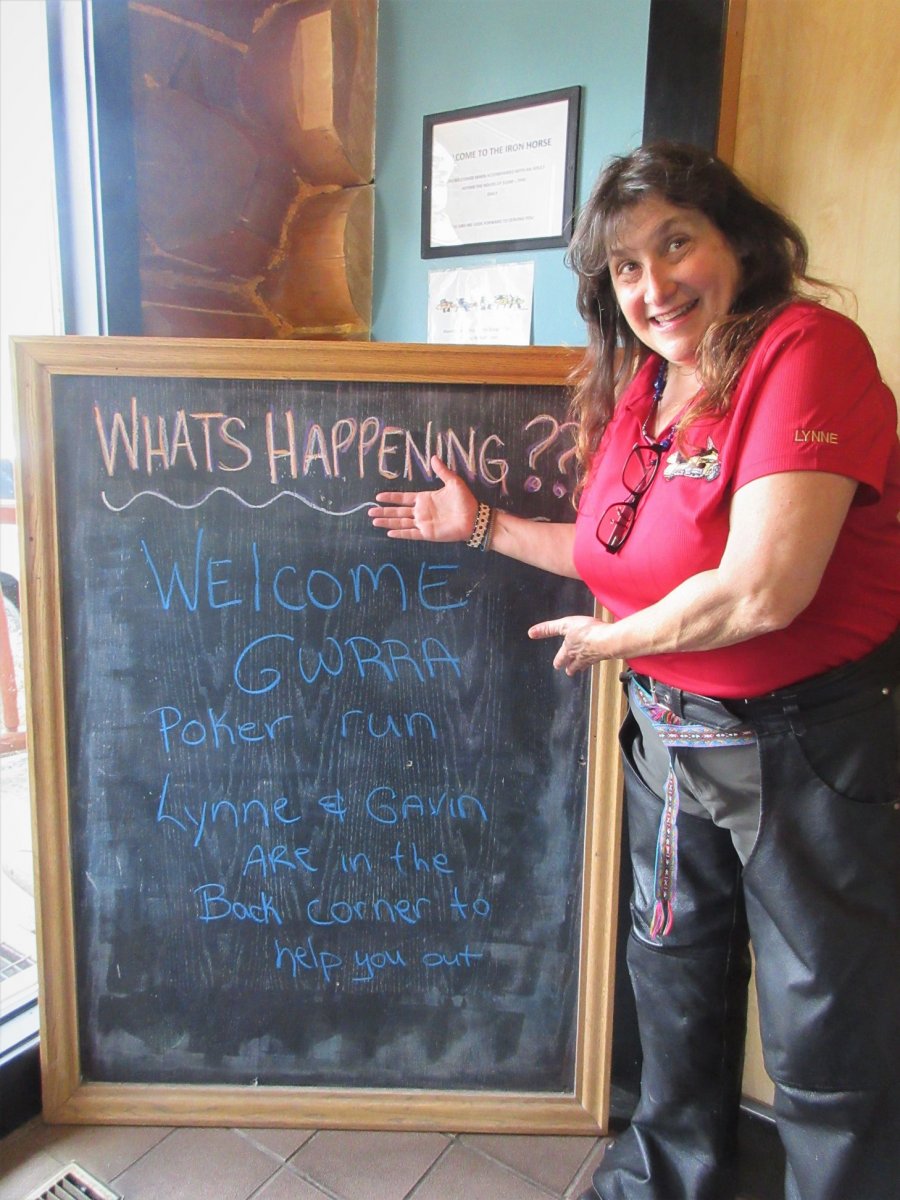 WELCOME TO THE IRON HORSE
LYNNE
WHATS HAPPENING ??
WELCOME
GWRRA
Poker run
Lynne & GAVIN
ARE in the
Back corner to
help you out